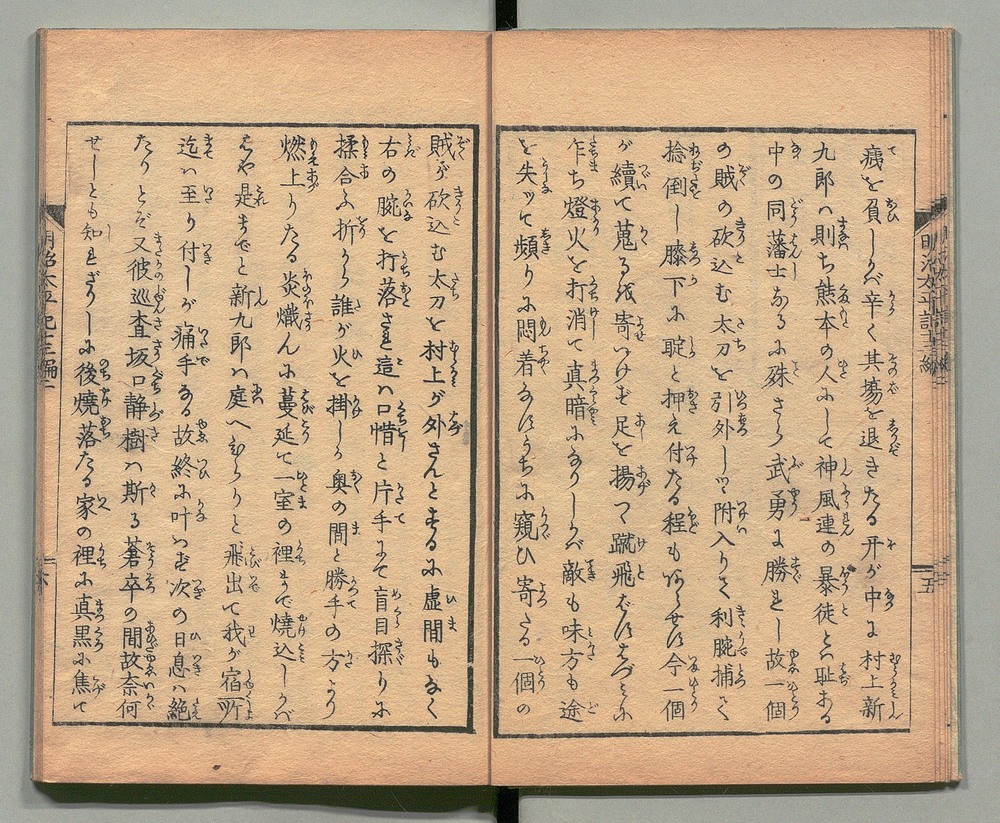 痍を負しかバ辛く其塲を退きたる开が中に村上新
九郎ハ則ち熊本の人にして神風連の暴徒とハ耻ある
中の同藩士なるに殊さら武勇に勝れし故一個
の賊の砍込む太刀を引外しざま附入りて利腕捕て
捻倒し膝下に聢と押え付たる程もあらせは今一個
が續て蒐るを寄つけも足を揚て蹴飛せバはづミに
乍ち燈火を打消て真暗になりしかバ敵も味方も途
を失ッて頻りに悶着なほうちに窺ひ寄たる一個の
明治太平記十三編
五
賊が砍込む太刀を村上が外さんとするに虚間もなく
右の腕を打落され這ハ口惜と片手にて盲目探りに
揉合ふ折から誰が火を掛しか奥の間と勝手の方より
燃上りたる炎熾んに蔓延て一室の裡まで焼込しかバ
今や是までと新九郎ハ庭へひらりと飛出て我が宿所
迄ハ至り付しが痛手なる故終に叶はず次の日息ハ絶
たりとぞ又彼巡査坂口静樹ハ斯る蒼卒の間故奈何
せしとも知れざりしに後焼落たる家の裡に真黒に焦て
明治太平記十三編
六